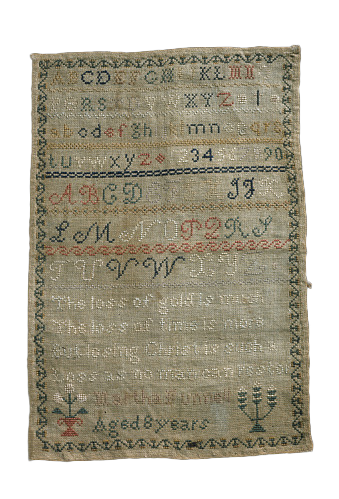 A B C D E F G H I KLMN
P R S T U V W XYZ
a b c d e f g h i k l m n o p q r s
t u v w x y z 234 90
A B C D I J
L M N O P Q R S
T U V W X Y
The loss of gold is much
The loss of time is more
But losing Christ is such a
Loss as no man can restor
Martha
Aged 8 years